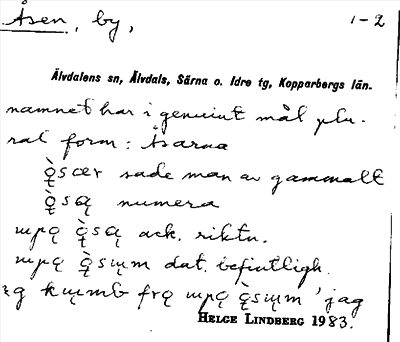 Åsen, by, 1-2
Älvdalens sn, Älvdals, Särna o. Idre tg, Kopparbergs län.
namnet har i genuint mål plu-
ral form: Åsarna
ǫ̀sær sade man av gammalt
ǫ̀są numera
upǫ ǫ̀są ack. riktn.
upǫ ǫ̀sųm dat. befintligh.
kųmb frą upǫ ǫ̀sųm 'jag
HELGE LINDBERG 1983.